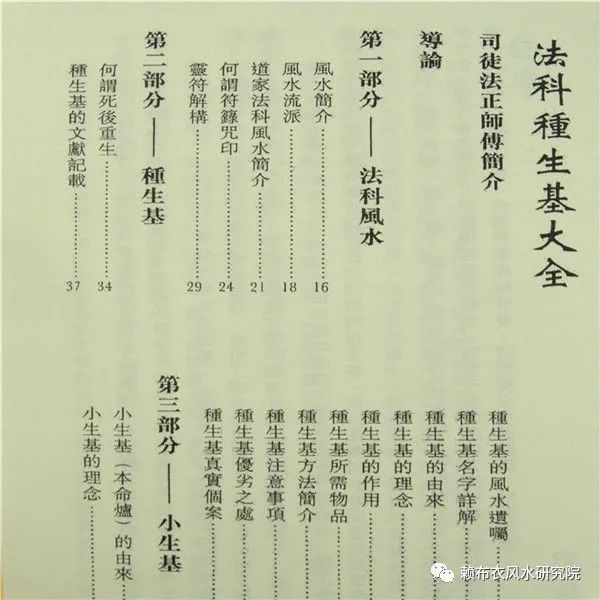 法科種生基大全
司徒法正師傅簡介
導論
第一部分——法科風水
風水簡介……16
風水流派……18
道家法科風水簡介……21
何謂符籙咒印……24
靈符解構……29
第二部分——種生基
何謂死後重生……34
種生基的文獻記載……37
種生基的風水遺囑……
種生基名字詳解……
種生基的由來……
種生基的理念……
種生基的作用……
種生基所需物品……
種生基方法簡介……
種生基注意事項……
種生基優劣之處……
種生基真實個案……
第三部分——小生基
小生基(本命爐)的由來……
小生基的理念……
赖布衣风水研究院